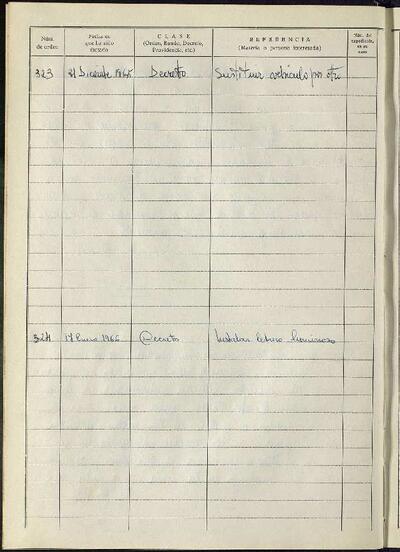 Núm. de orden
Fecha en que ha sido dictado
CLASE
(Orden, Bando, Decreto, Providencia, etc.)
REFERENCIA
(Materia o persona interesada)
Núm. del expediente, en su caso
323 21 Dicembre 1965 Decreto Sustituir vehiculo por otro
324 17 Enero 1966 Decreto Instalar letrero luminoso